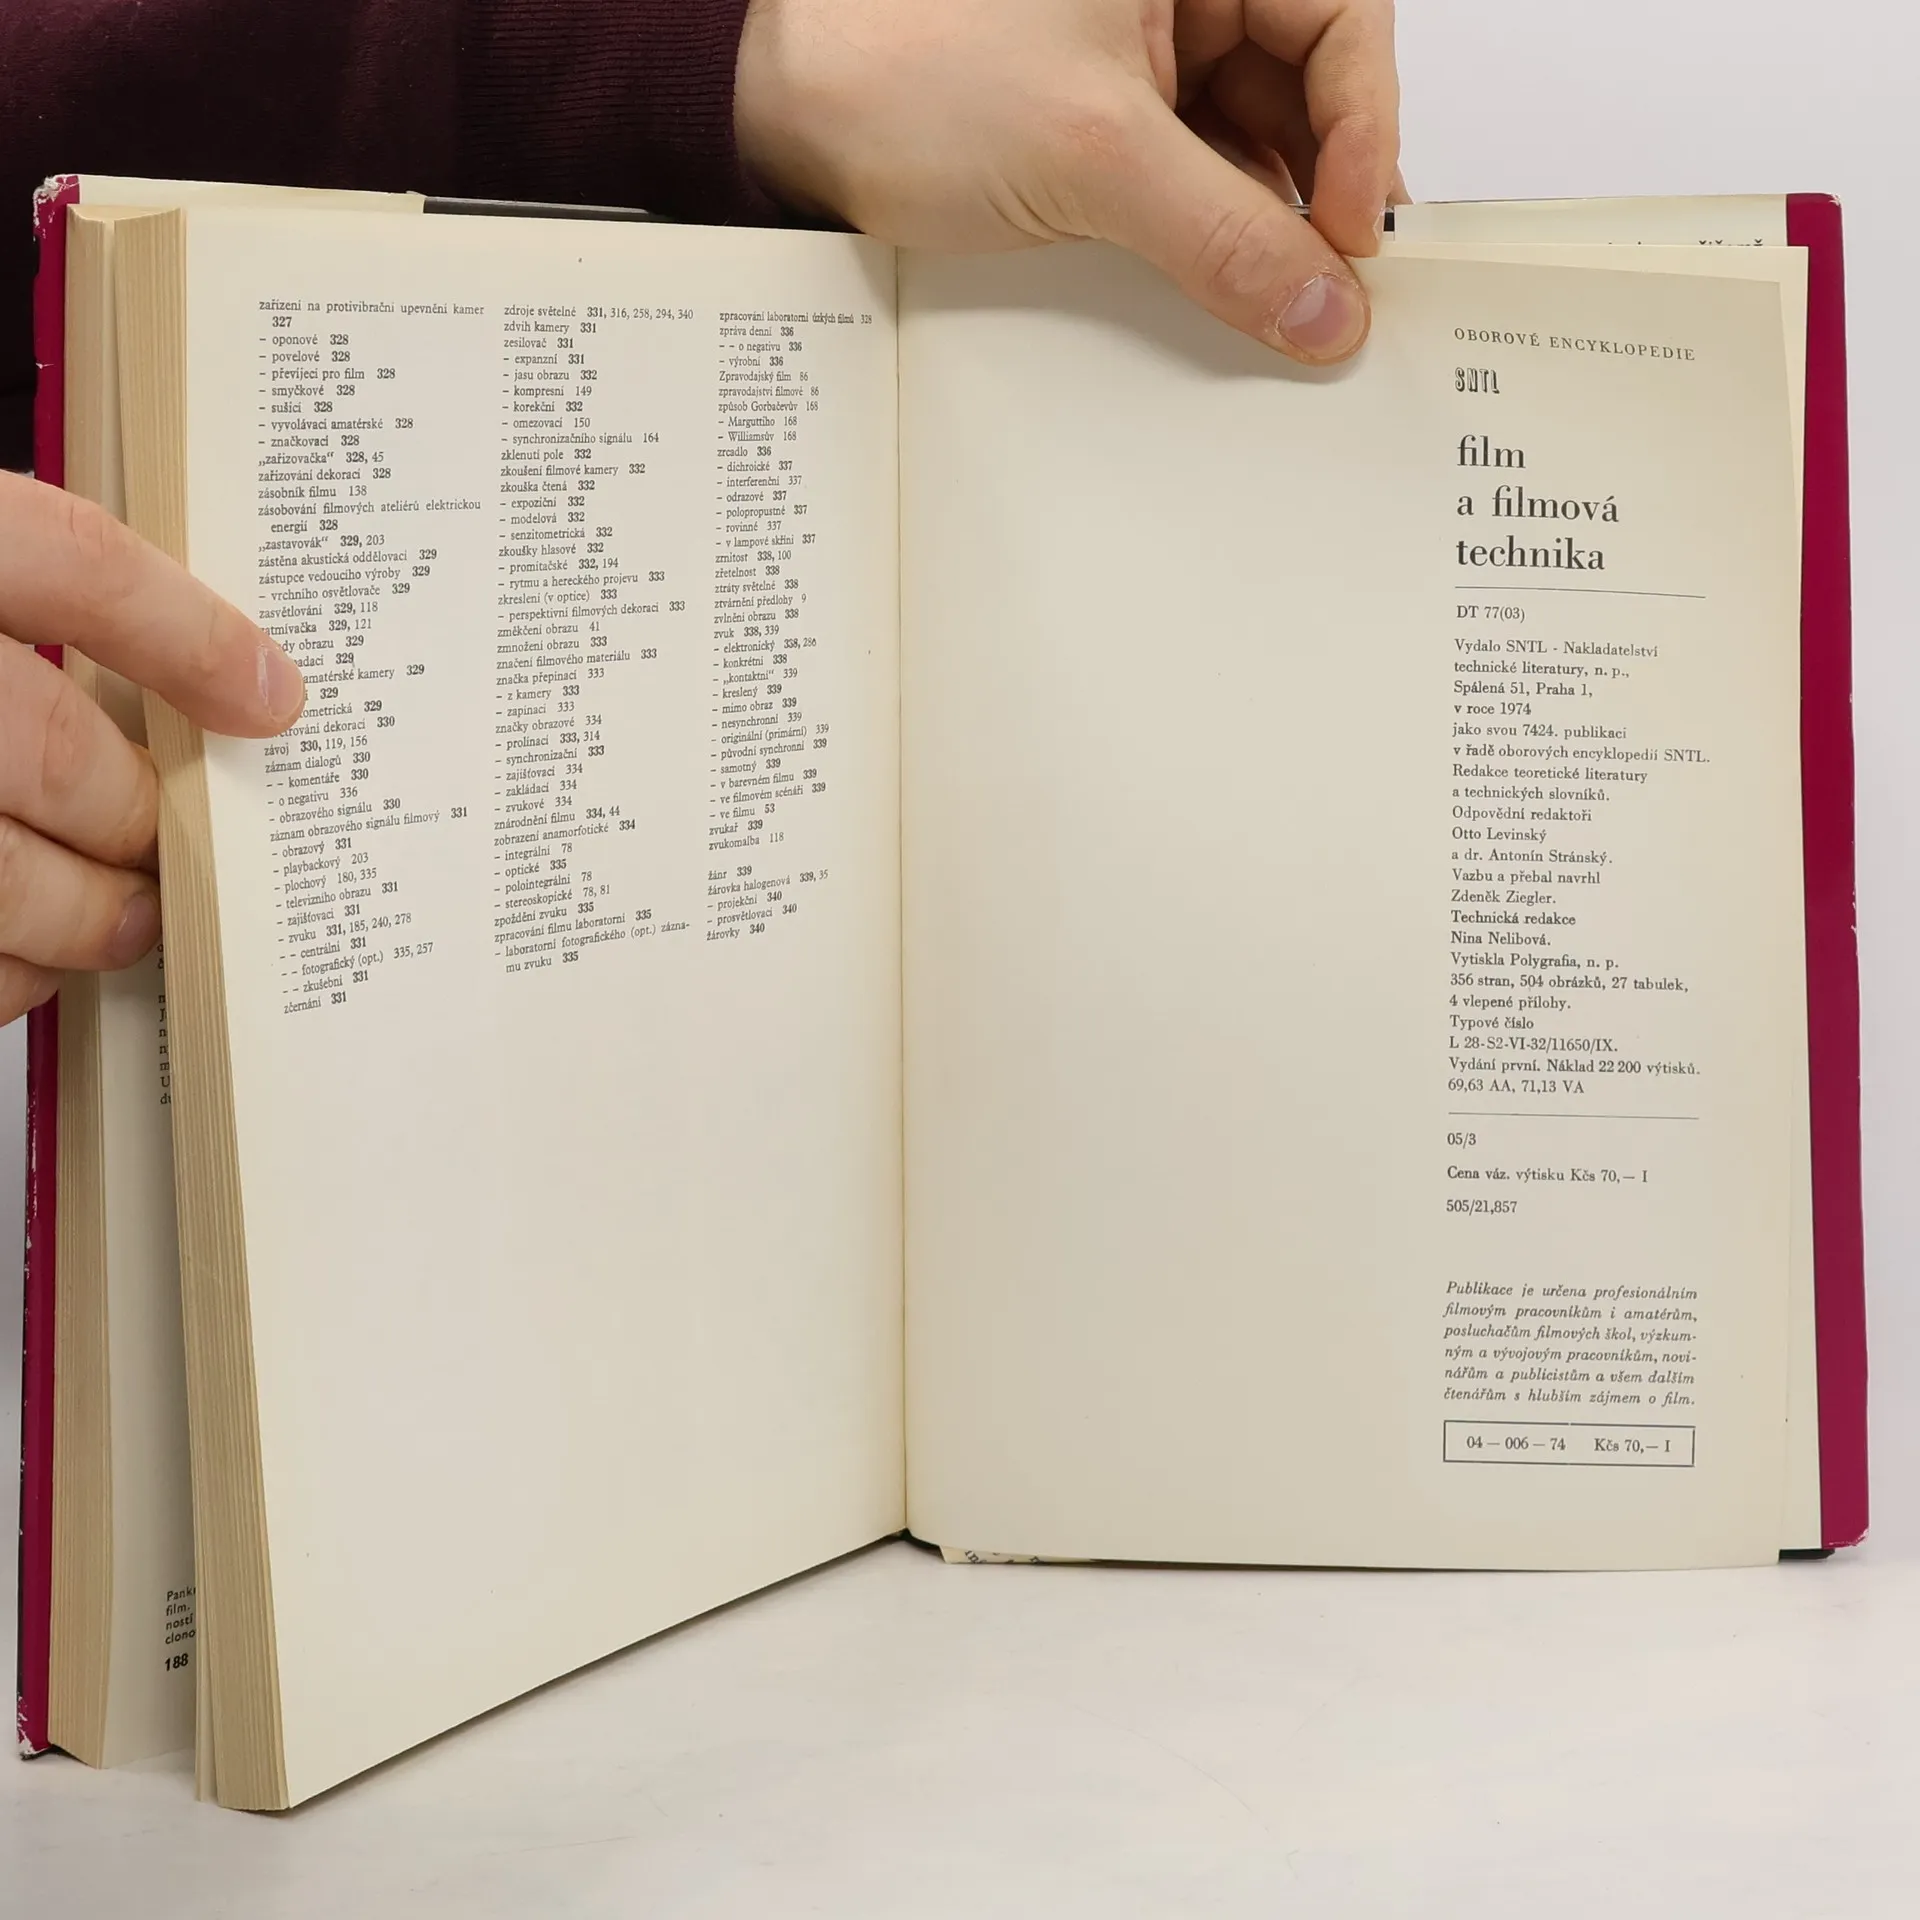 zařízení na protivibrační upevnění kamer
327
– oponové 328
– povelové 328
– převíjecí pro film 328
– smyčkové 328
– sušicí 328
– vyvolávací amatérské 328
– značkovací 328
„zařizovačka“ 328, 45
zařizování dekorací 328
zásobník filmu 138
zásobování filmových ateliérů elektrickou
energií 328
„zastavovák“ 329, 203
zástěna akustická oddělovací 329
zástupce vedoucího výroby 329
– vrchního osvětlovače 329
zasvětlování 329, 118
329, 121
obrazu 329
329
amatérské kamery 329
329
329
dekorací 330
závoj 330, 119, 156
záznam dialogů 330
– – komentáře 330
– o negativu 336
– obrazového signálu 330
záznam obrazového signálu filmový 331
– obrazový 331
– playbackový 203
– plochový 180, 335
– televizního obrazu 331
– zajišťovací 331
– zvuku 331, 185, 240, 278
– – centrální 331
– – fotografický (opt.) 335, 257
– – zkušební 331
zčernání 331
zdroje světelné 331, 316, 258, 294, 340
zdvih kamery 331
zesilovač 331
– expanzní 331
– jasu obrazu 332
– kompresní 149
– korekční 332
– omezovací 150
– synchronizačního signálu 164
zklenutí pole 332
zkoušení filmové kamery 332
zkouška čtená 332
– expoziční 332
– modelová 332
– senzitometrická 332
zkoušky hlasové 332
– promítačské 332, 194
– rytmu a hereckého projevu 333
zkreslení (v optice) 333
– perspektivní filmových dekorací 333
změkčení obrazu 41
zmnožení obrazu 333
značení filmového materiálu 333
značka přepínací 333
– z kamery 333
– zapínací 333
značky obrazové 334
– prolínací 333, 314
– synchronizační 333
– zajišťovací 334
– zakládací 334
– zvukové 334
znárodnění filmu 334, 44
zobrazení anamorfotické 334
– integrální 78
– optické 335
– polointegrální 78
– stereoskopické 78, 81
zpoždění zvuku 335
zpracování filmu laboratorní 335
– laboratorní fotografického (opt.) zázna-
mu zvuku 335
zpracování laboratorní úzkých filmů 328
zpráva denní 336
– – o negativu 336
– výrobní 336
Zpravodajský film 86
zpravodajství filmové 86
způsob Gorbačevův 168
– Marguttiho 168
– Williamsův 168
zrcadlo 336
– dichroické 337
– interferenční 337
– odrazové 337
– polopropustné 337
– rovinné 337
– v lampové skříni 337
zrnitost 338, 100
zřetelnost 338
ztráty světelné 338
ztvárnění předlohy 9
zvlnění obrazu 338
zvuk 338, 339
– elektronický 338, 286
– konkrétní 338
– „kontaktní“ 339
– kreslený 339
– mimo obraz 339
– nesynchronní 339
– originální (primární) 339
– původní synchronní 339
– samotný 339
– v barevném filmu 339
– ve filmovém scénáři 339
– ve filmu 53
zvukař 339
zvukomalba 118
žánr 339
žárovka halogenová 339, 35
– projekční 340
– prosvětlovací 340
žárovky 340
film.
ností
188
OBOROVÉ ENCYKLOPEDIE
SNTL
film
a filmová
technika
DT 77(03)
Vydalo SNTL - Nakladatelství
technické literatury, n. p.,
Spálená 51, Praha 1,
v roce 1974
jako svou 7424. publikaci
v řadě oborových encyklopedií SNTL.
Redakce teoretické literatury
a technických slovníků.
Odpovědní redaktoři
Otto Levinský
a dr. Antonín Stránský.
Vazbu a přebal navrhl
Zdeněk Ziegler.
Technická redakce
Nina Nelibová.
Vytiskla Polygrafia, n. p.
356 stran, 504 obrázků, 27 tabulek,
4 vlepené přílohy.
Typové číslo
L 28-S2-VI-32/11650/IX.
Vydání první. Náklad 22 200 výtisků.
69,63 AA, 71,13 VA
05/3
Cena váz. výtisku Kčs 70,— I
505/21,857
Publikace je určena profesionálním
filmovým pracovníkům i amatérům,
posluchačům filmových škol, výzkum-
ným a vývojovým pracovníkům, novi-
nářům a publicistům a všem dalším
čtenářům s hlubším zájmem o film.
04 — 006 — 74 Kčs 70,— I